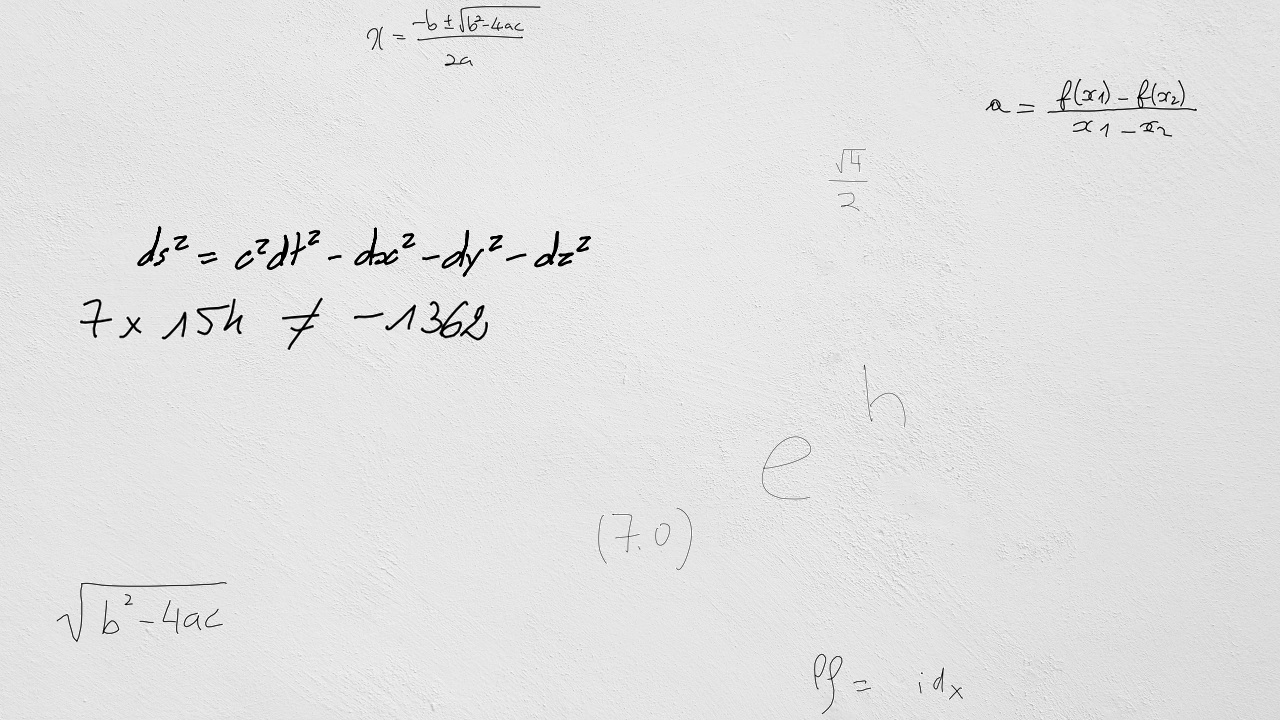 x = -b ± √b²-4ac / 2a
a = f(x1) - f(x2) / x1 - x2
√4 / 2
ds² = c²dt² - dx² - dy² - dz²
7 x 15h ≠ -1362
e^h
(7.0)
√b² - 4ac
= idx